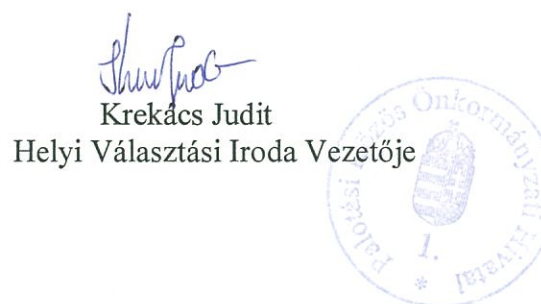 Krekács Judit
Helyi Választási Iroda Vezetője
Palotási Közös Önkormányzati Hivatal
1.
*